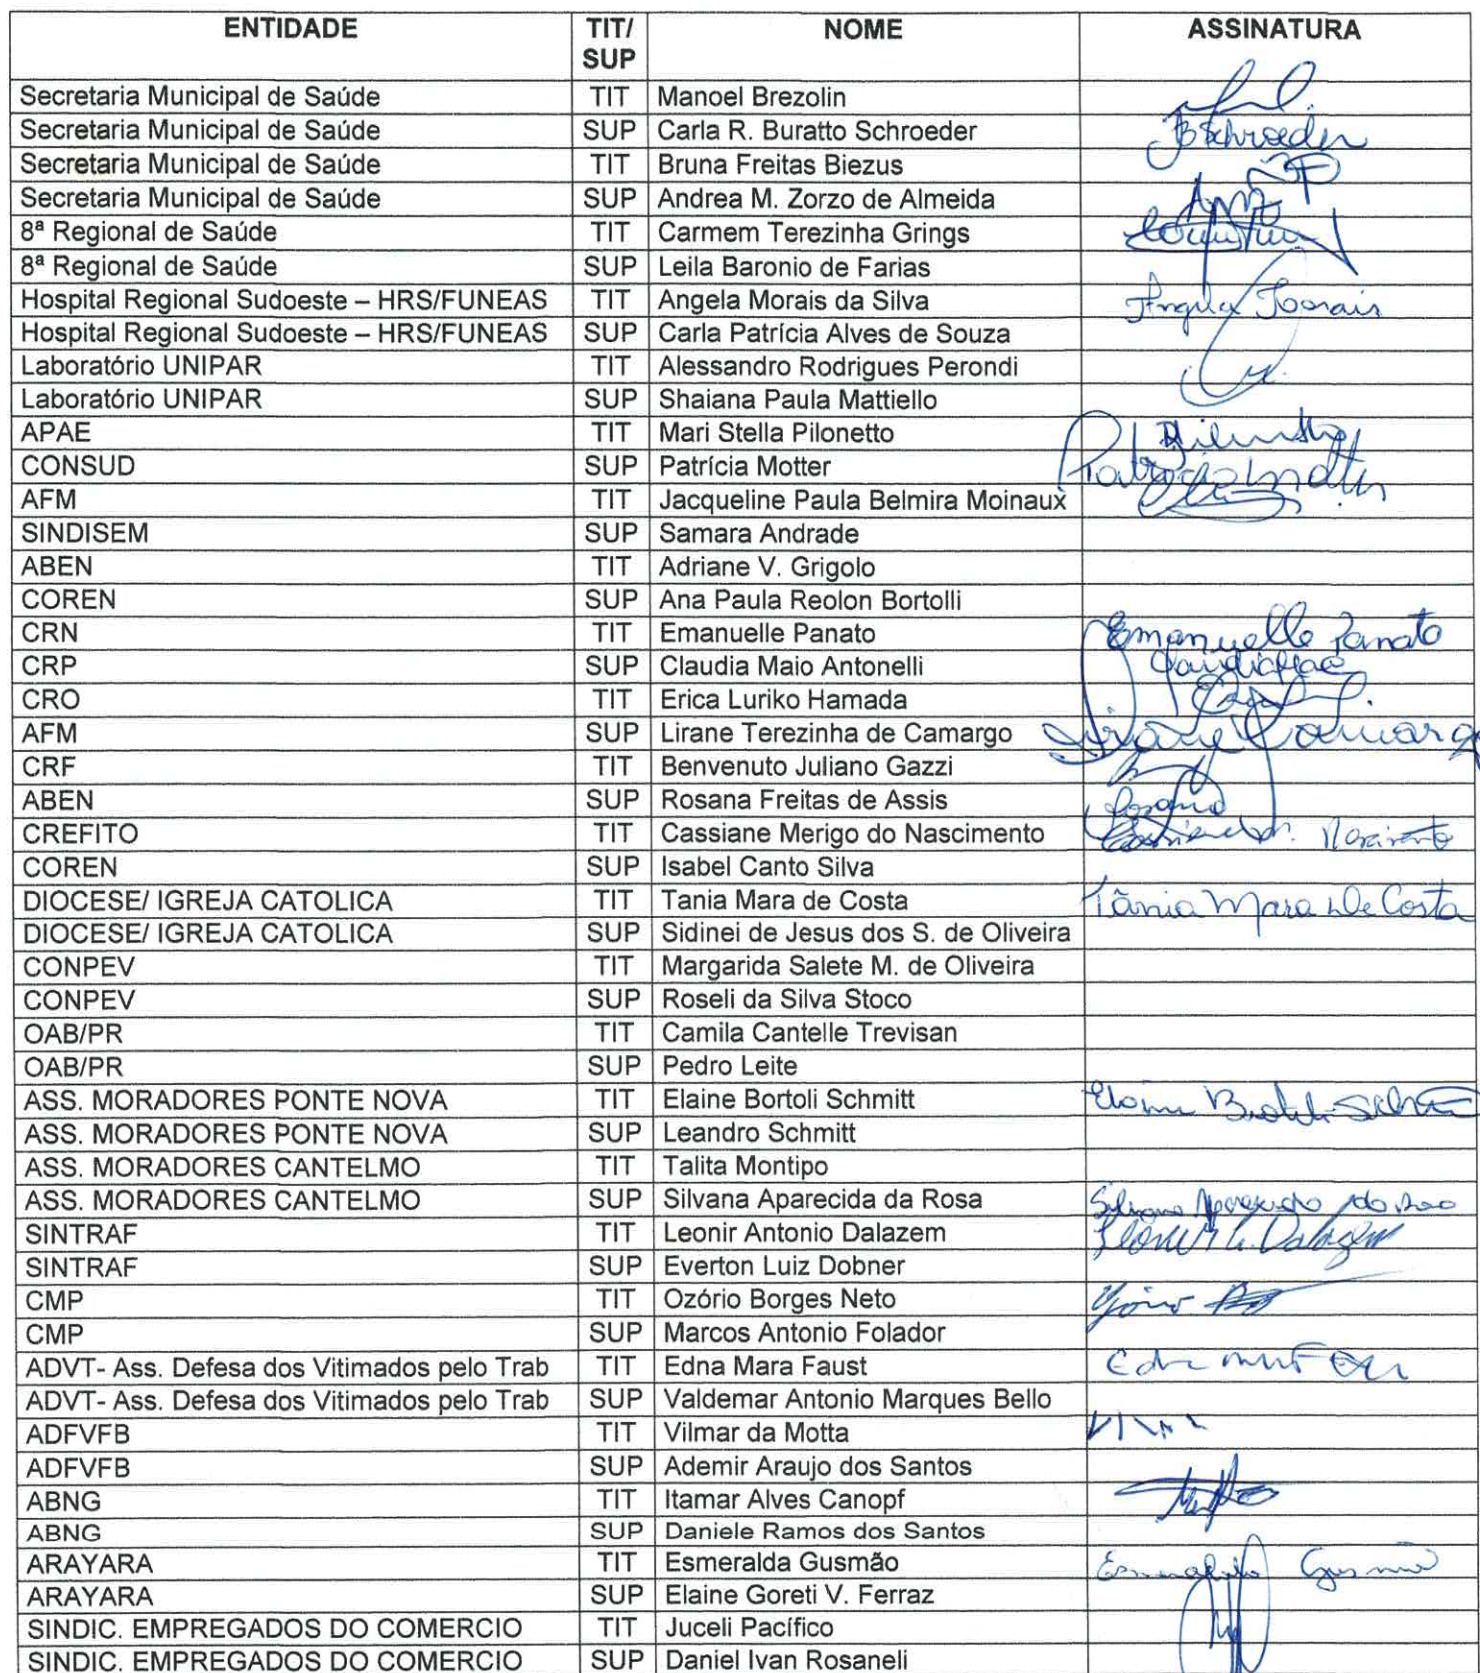 ENTIDADE TIT/ SUP NOME ASSINATURA
Secretaria Municipal de Saúde TIT Manoel Brezolin
Secretaria Municipal de Saúde SUP Carla R. Buratto Schroeder BSchroeder
Secretaria Municipal de Saúde TIT Bruna Freitas Biezus
Secretaria Municipal de Saúde SUP Andrea M. Zorzo de Almeida
8ª Regional de Saúde TIT Carmem Terezinha Grings
8ª Regional de Saúde SUP Leila Baronio de Farias
Hospital Regional Sudoeste – HRS/FUNEAS TIT Angela Morais da Silva Angela Morais
Hospital Regional Sudoeste – HRS/FUNEAS SUP Carla Patrícia Alves de Souza
Laboratório UNIPAR TIT Alessandro Rodrigues Perondi
Laboratório UNIPAR SUP Shaiana Paula Mattiello
APAE TIT Mari Stella Pilonetto
CONSUD SUP Patrícia Motter Patrícia Motter
AFM TIT Jacqueline Paula Belmira Moinaux
SINDISEM SUP Samara Andrade
ABEN TIT Adriane V. Grigolo
COREN SUP Ana Paula Reolon Bortolli
CRN TIT Emanuelle Panato Emanuelle Panato
CRP SUP Claudia Maio Antonelli
CRO TIT Erica Luriko Hamada
AFM SUP Lirane Terezinha de Camargo Lirane Camargo
CRF TIT Benvenuto Juliano Gazzi
ABEN SUP Rosana Freitas de Assis Rosana
CREFITO TIT Cassiane Merigo do Nascimento
COREN SUP Isabel Canto Silva
DIOCESE/ IGREJA CATOLICA TIT Tania Mara de Costa Tânia Mara De Costa
DIOCESE/ IGREJA CATOLICA SUP Sidinei de Jesus dos S. de Oliveira
CONPEV TIT Margarida Salete M. de Oliveira
CONPEV SUP Roseli da Silva Stoco
OAB/PR TIT Camila Cantelle Trevisan
OAB/PR SUP Pedro Leite
ASS. MORADORES PONTE NOVA TIT Elaine Bortoli Schmitt
ASS. MORADORES PONTE NOVA SUP Leandro Schmitt
ASS. MORADORES CANTELMO TIT Talita Montipo
ASS. MORADORES CANTELMO SUP Silvana Aparecida da Rosa
SINTRAF TIT Leonir Antonio Dalazem Leonir A. Dalazem
SINTRAF SUP Everton Luiz Dobner
CMP TIT Ozório Borges Neto
CMP SUP Marcos Antonio Folador
ADVT- Ass. Defesa dos Vitimados pelo Trab TIT Edna Mara Faust
ADVT- Ass. Defesa dos Vitimados pelo Trab SUP Valdemar Antonio Marques Bello
ADFVFB TIT Vilmar da Motta
ADFVFB SUP Ademir Araujo dos Santos
ABNG TIT Itamar Alves Canopf
ABNG SUP Daniele Ramos dos Santos
ARAYARA TIT Esmeralda Gusmão Esmeralda Gusmão
ARAYARA SUP Elaine Goreti V. Ferraz
SINDIC. EMPREGADOS DO COMERCIO TIT Juceli Pacífico
SINDIC. EMPREGADOS DO COMERCIO SUP Daniel Ivan Rosaneli